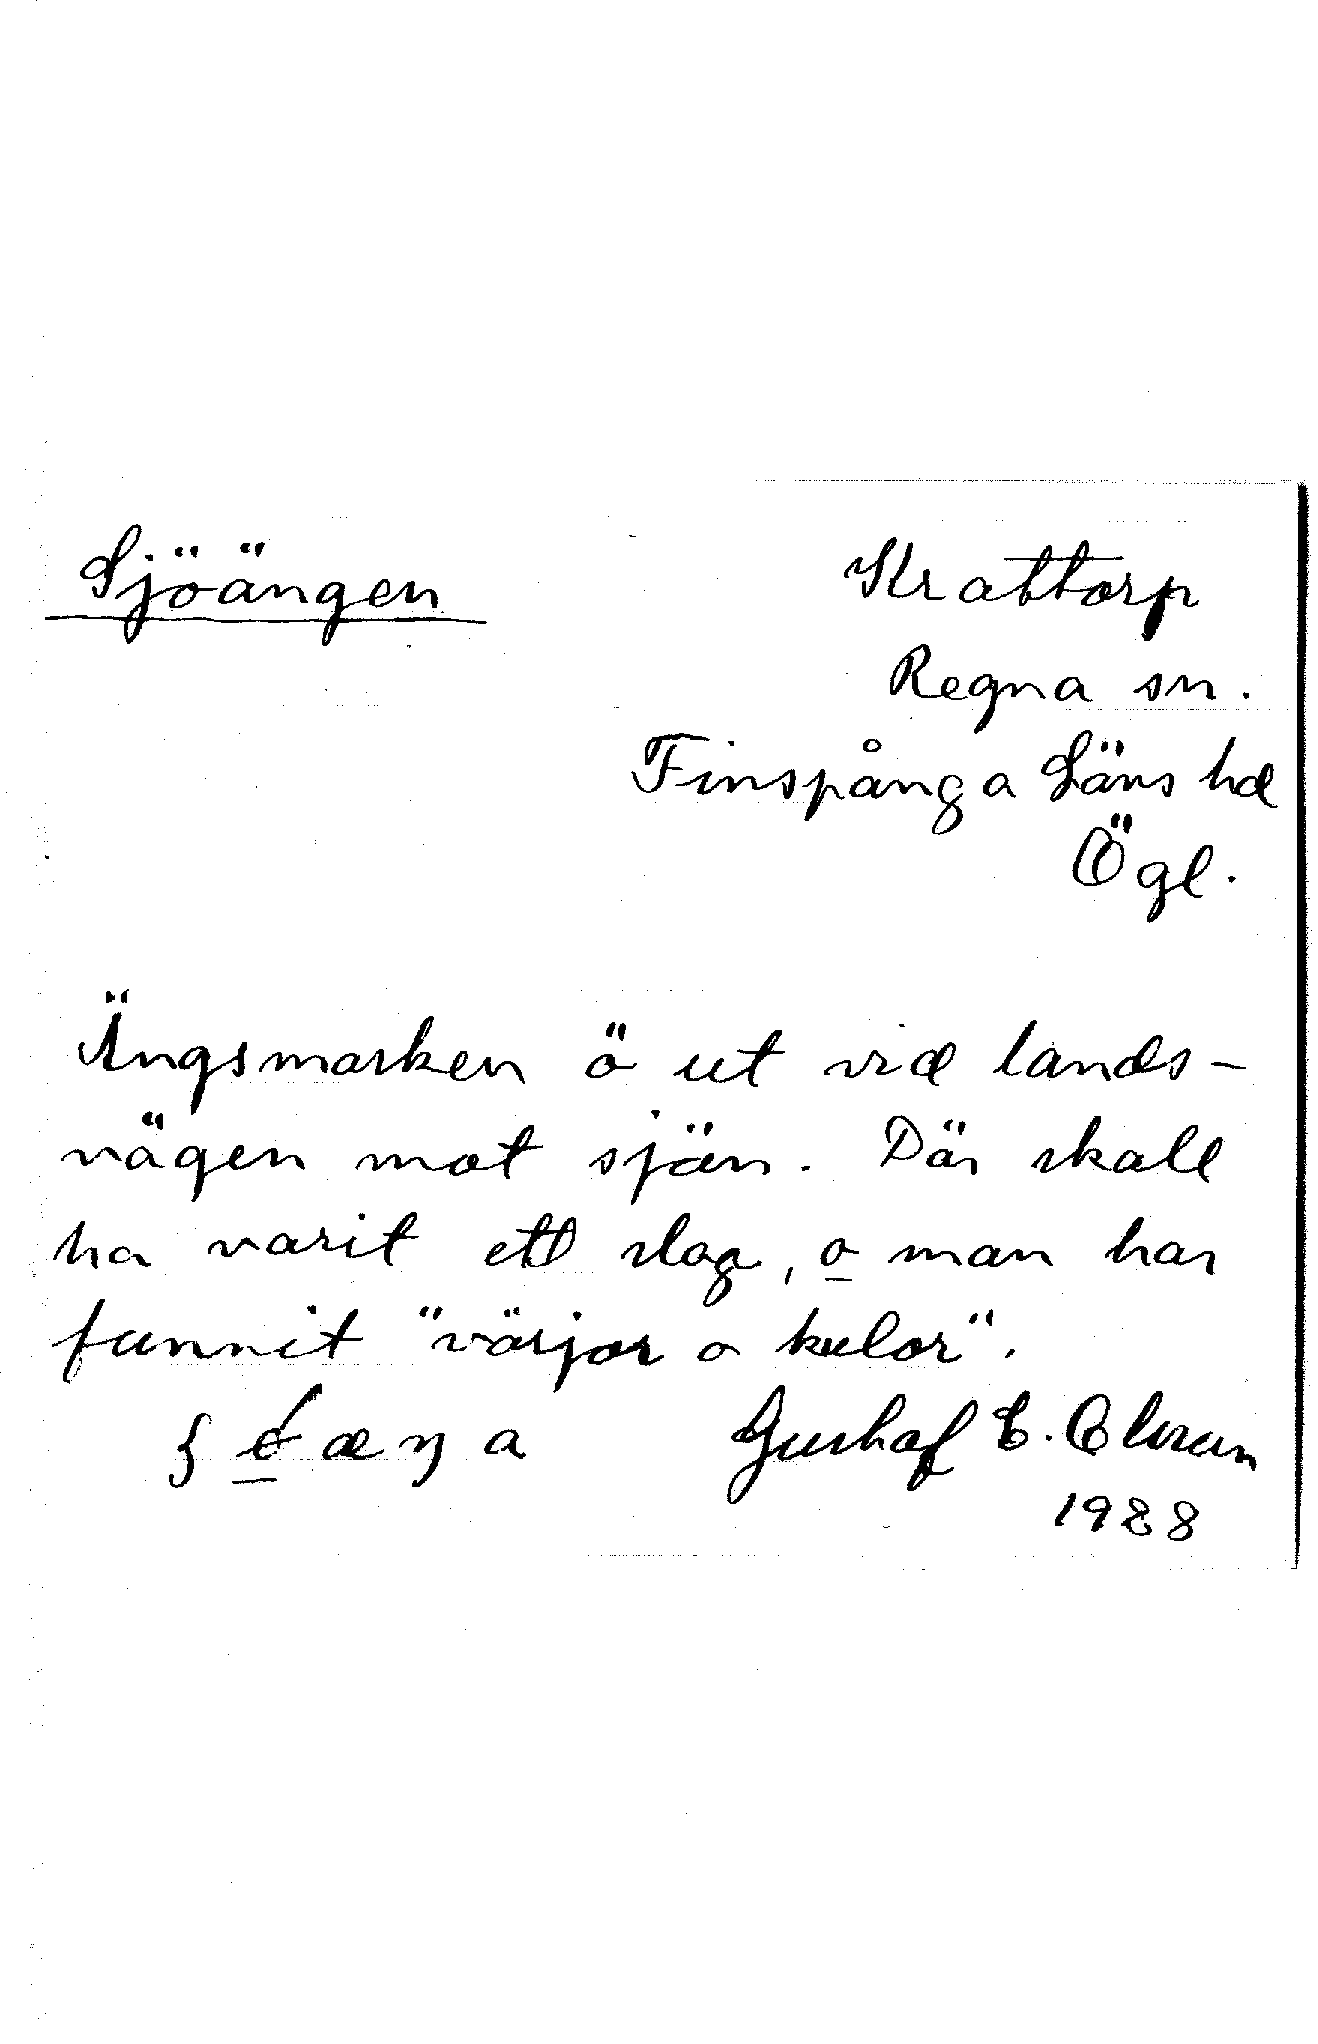 Sjöängen
Krattorp
Regna sn.
Finspånga Läns hd
Ögl.
Ängsmarken ö ut vid lands-
vägen mot sjön. Där skall
ha varit ett slag, o man har
funnit "värjor o kulor".
Gustaf E.
1928